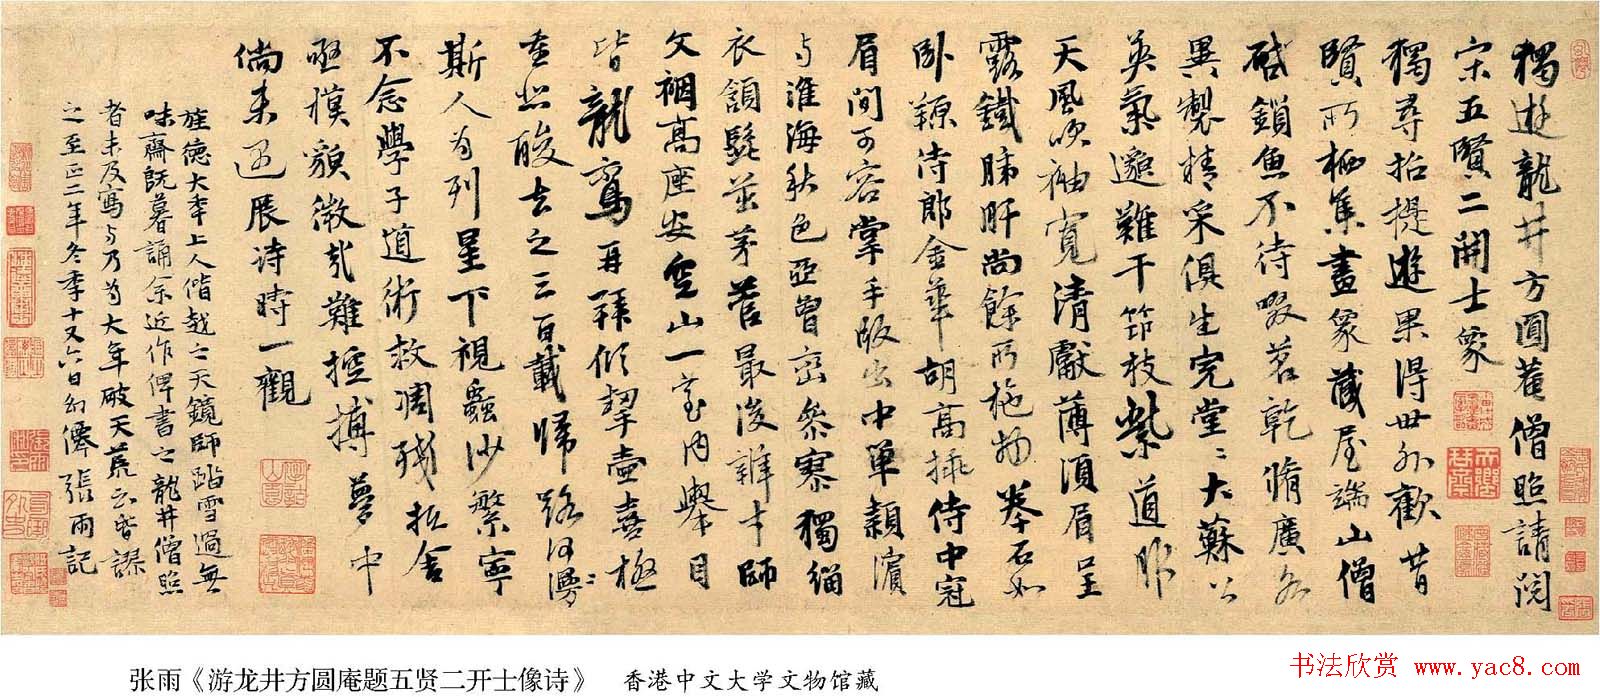 獨遊龍井方圓菴僧照請閱
宋五賢二開士象
獨尋招提遊果得世外歡昔
賢所栖集畫象藏屋端山僧
啓鎖魚不待啜茗乾脩廣各
異製精采俱生完堂〻大蘇公
英氣邈難干節枝紫道服
天風吹袖寬清獻薄須眉呈
露鐵肺肝尚餘所施物拳石如
臥豲侍郎金華胡高揷侍中冠
眉間可容掌手版出中單潁濱
与淮海秋色亞曾巒參寥獨緇
衣頷髭茁茅菅最後辯才師
文裀高座安空山一室內舉目
皆龍鸞再拜傾挈壺喜極
悲酸去之三百載歸路何漫〻
斯人為列星下視蟲沙繁寧
不念學子道術救凋殘抵舍
亟模貌微茫難摶夢中
倘未逼展詩時一觀
旌德大本上人偕越之天鏡師踏雪過無
味齋既暮誦余近作俾書之龍井僧照
者未及寫与乃為大年破天荒云皆謬
之至正二年冬季十又六日幻僊張雨記
张雨《游龙井方圆庵题五贤二开士像诗》 香港中文大学文物馆藏
书法欣赏 www.yac8.com